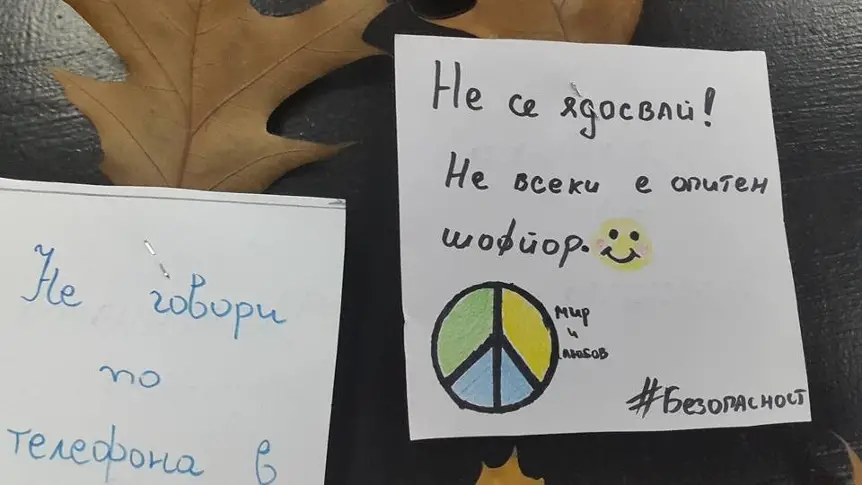 Не се ядосвай!
Не всеки е опитен
шофйор.
мир
и
любов
#Безопасност
Не говори
по
телефона в